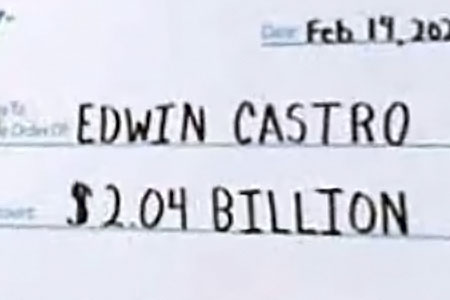 Date Feb 14, 202
EDWIN CASTRO
$2.04 BILLION